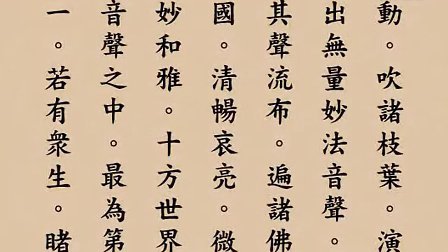 動。吹諸枝葉。演
出無量妙法音聲。
其聲流布。遍諸佛
國。清暢哀亮。微
妙和雅。十方世界
音聲之中。最為第
一。若有眾生。睹